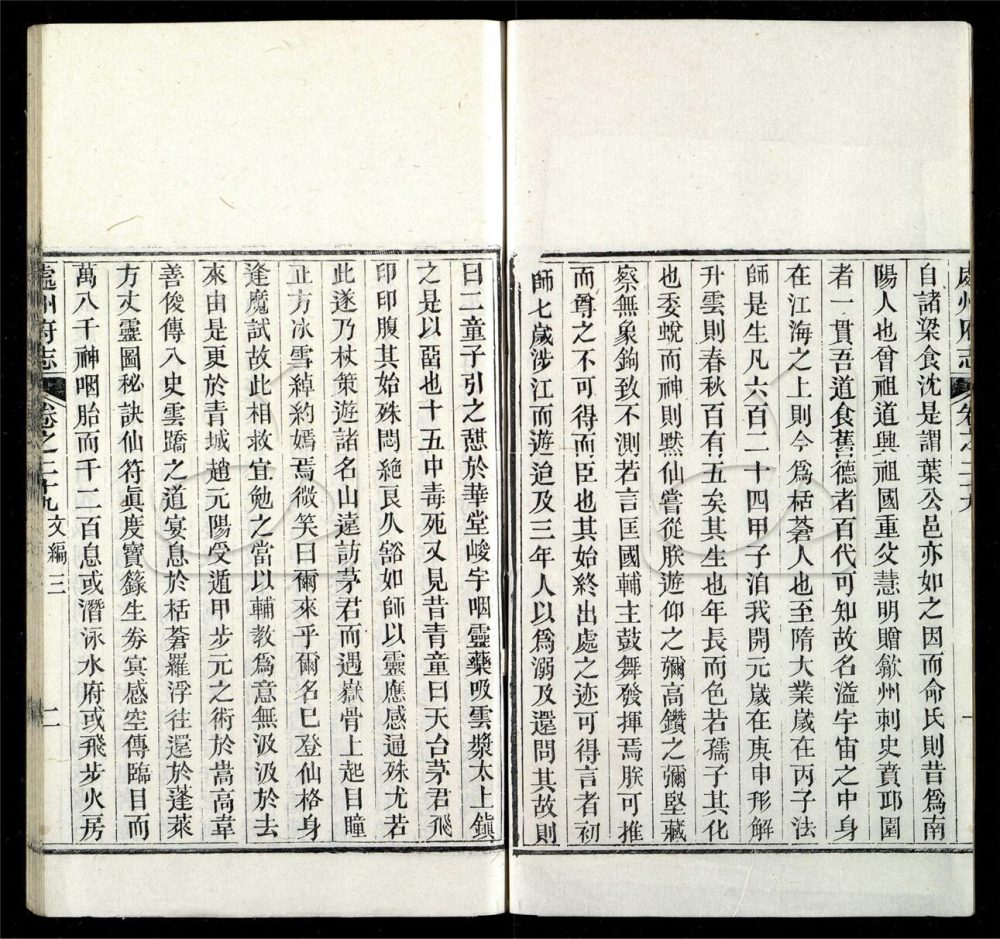 處州府志 卷之二十九
自諸梁食沈是謂葉公邑亦如之因而命氏則昔爲南
陽人也曾祖道興祖國重父慧明贈歙州刺史賁邱園
者一貫吾道食舊德者百代可知故名溢宇宙之中身
在江海之上則今爲栝蒼人也至隋大業歲在丙子法
師是生凡六百二十四甲子洎我開元歲在庚申形解
升雲則春秋百有五矣其生也年長而色若孺子其化
也委蛻而神則默仙嘗從朕遊仰之彌高鑽之彌堅藏
察無象鉤致不測若言匡國輔主鼓舞發揮焉朕可推
而尊之不可得而臣也其始終出處之迹可得言者初
師七歲涉江而遊迨及三年人以爲溺及還問其故則
曰二童子引之憇於華堂峻宇咽靈藥吸雲漿太上鎭
之是以畱也十五中毒死又見昔青童曰天台茅君飛
印印腹其始殊悶絶良久豁如師以靈應感通殊尤若
此遂乃杖策遊諸名山遠訪茅君而遇嶽骨上起目瞳
正方冰雪綽約嫣焉微笑曰爾來乎爾名已登仙格身
逢魔試故此相救宜勉之當以輔教爲意無汲汲於去
來由是更於青城趙元陽受遁甲步元之術於嵩高韋
善俊傳八史雲蹻之道宴息於栝蒼羅浮往還於蓬萊
方丈靈圖秘訣仙符眞度寶籙生劵冥感空傳臨目而
萬八千神咽胎而千二百息或潛泳水府或飛步火房
處州府志 卷之二十九 文編三 二